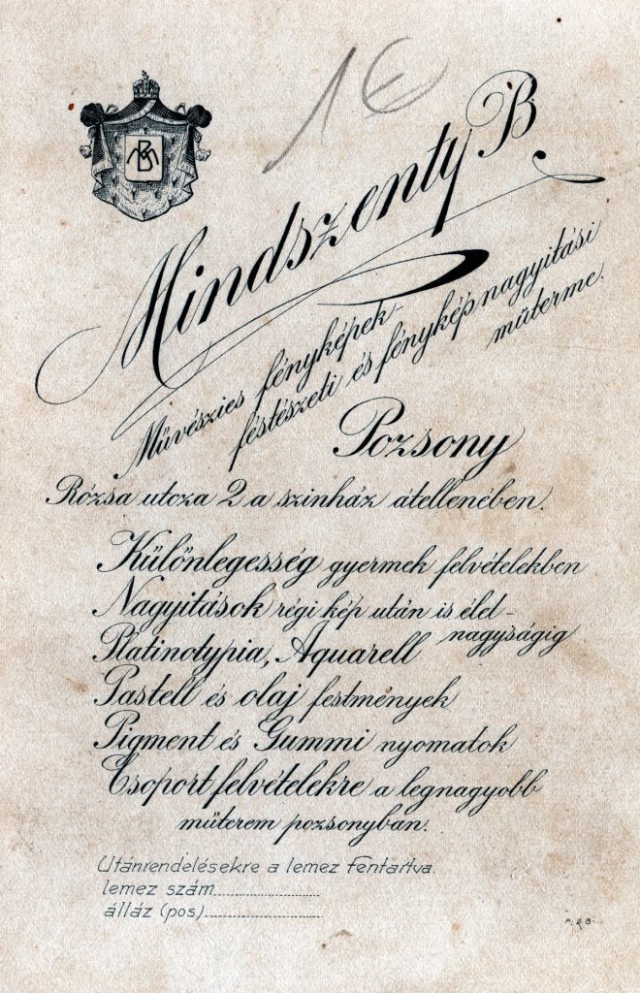 1 €
BM
Mindszenty B.
Művészies fényképek-
festészeti és fényképnagyitási
műterme.
Pozsony
Rózsa utcza 2 a szinház átellenében.
Különlegesség gyermek felvételekben
Nagyitások régi kép után is élet-
nagyságig
Platinotypia, Aquarell
Pastell és olaj festmények
Pigment és Gummi nyomatok
Csoport felvételekre a legnagyobb
műterem pozsonyban.
Utánrendelésekre a lemez fentartva.
lemez szám
álláz (pos.)